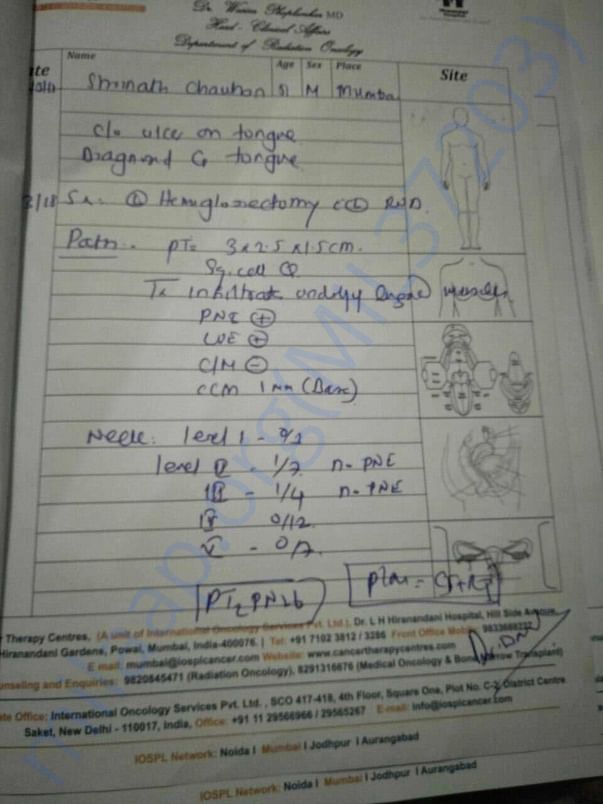 MD
Head - Clinical Affairs
Department of Radiation Oncology
Name Age Sex Place
Site
Shrinath Chauhan 51 M Mumbai
c/o ulcer on tongue
Diagnosed Ca tongue
Path:- pT= 3x2.5x1.5cm.
Sq. cell Ca
Tr. infiltrate underlying lingual muscles
PNE +
LVE +
C/M -
ccm 1mm (Base)
Neck: level I -
level II - 1/7 n- PNE
III - 1/4 n- PNE
IV 0/12
V - 0/7
pT2 pN2b
Plan = CT+RT
Therapy Centres, (A unit of International Oncology Services Pvt. Ltd.), Dr. L H Hiranandani Hospital, Hill Side Avenue,
Hiranandani Gardens, Powai, Mumbai, India-400076. | Tel: +91 7102 3812 / 3286 Front Office Mobile
E mail: mumbai@iosplcancer.com Website: www.cancertherapycentres.com
unseling and Enquiries: 9820845471 (Radiation Oncology), 8291316876 (Medical Oncology & Bone Marrow Transplant)
ate Office: International Oncology Services Pvt. Ltd. , SCO 417-418, 4th Floor, Square One, Plot No. C-2, District Centre
Saket, New Delhi - 110017, India, Office: +91 11 29566966 / 29565267 E-mail: info@iosplcancer.com
IOSPL Network: Noida I Mumbai I Jodhpur I Aurangabad
IOSPL Network: Noida I Mumbai I Jodhpur I Aurangabad